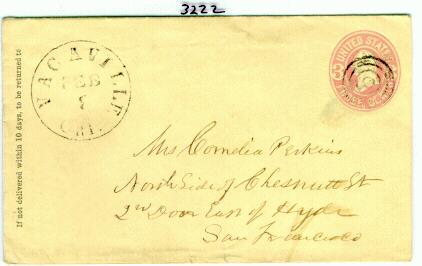 3222
If not delivered within 10 days, to be returned to
VACAVILLE
FEB
7
CAL.
UNITED STATES
Mrs Cornelia Perkins
North Side of Chesnutt St
2nd Door East of Hyde
San Francisco